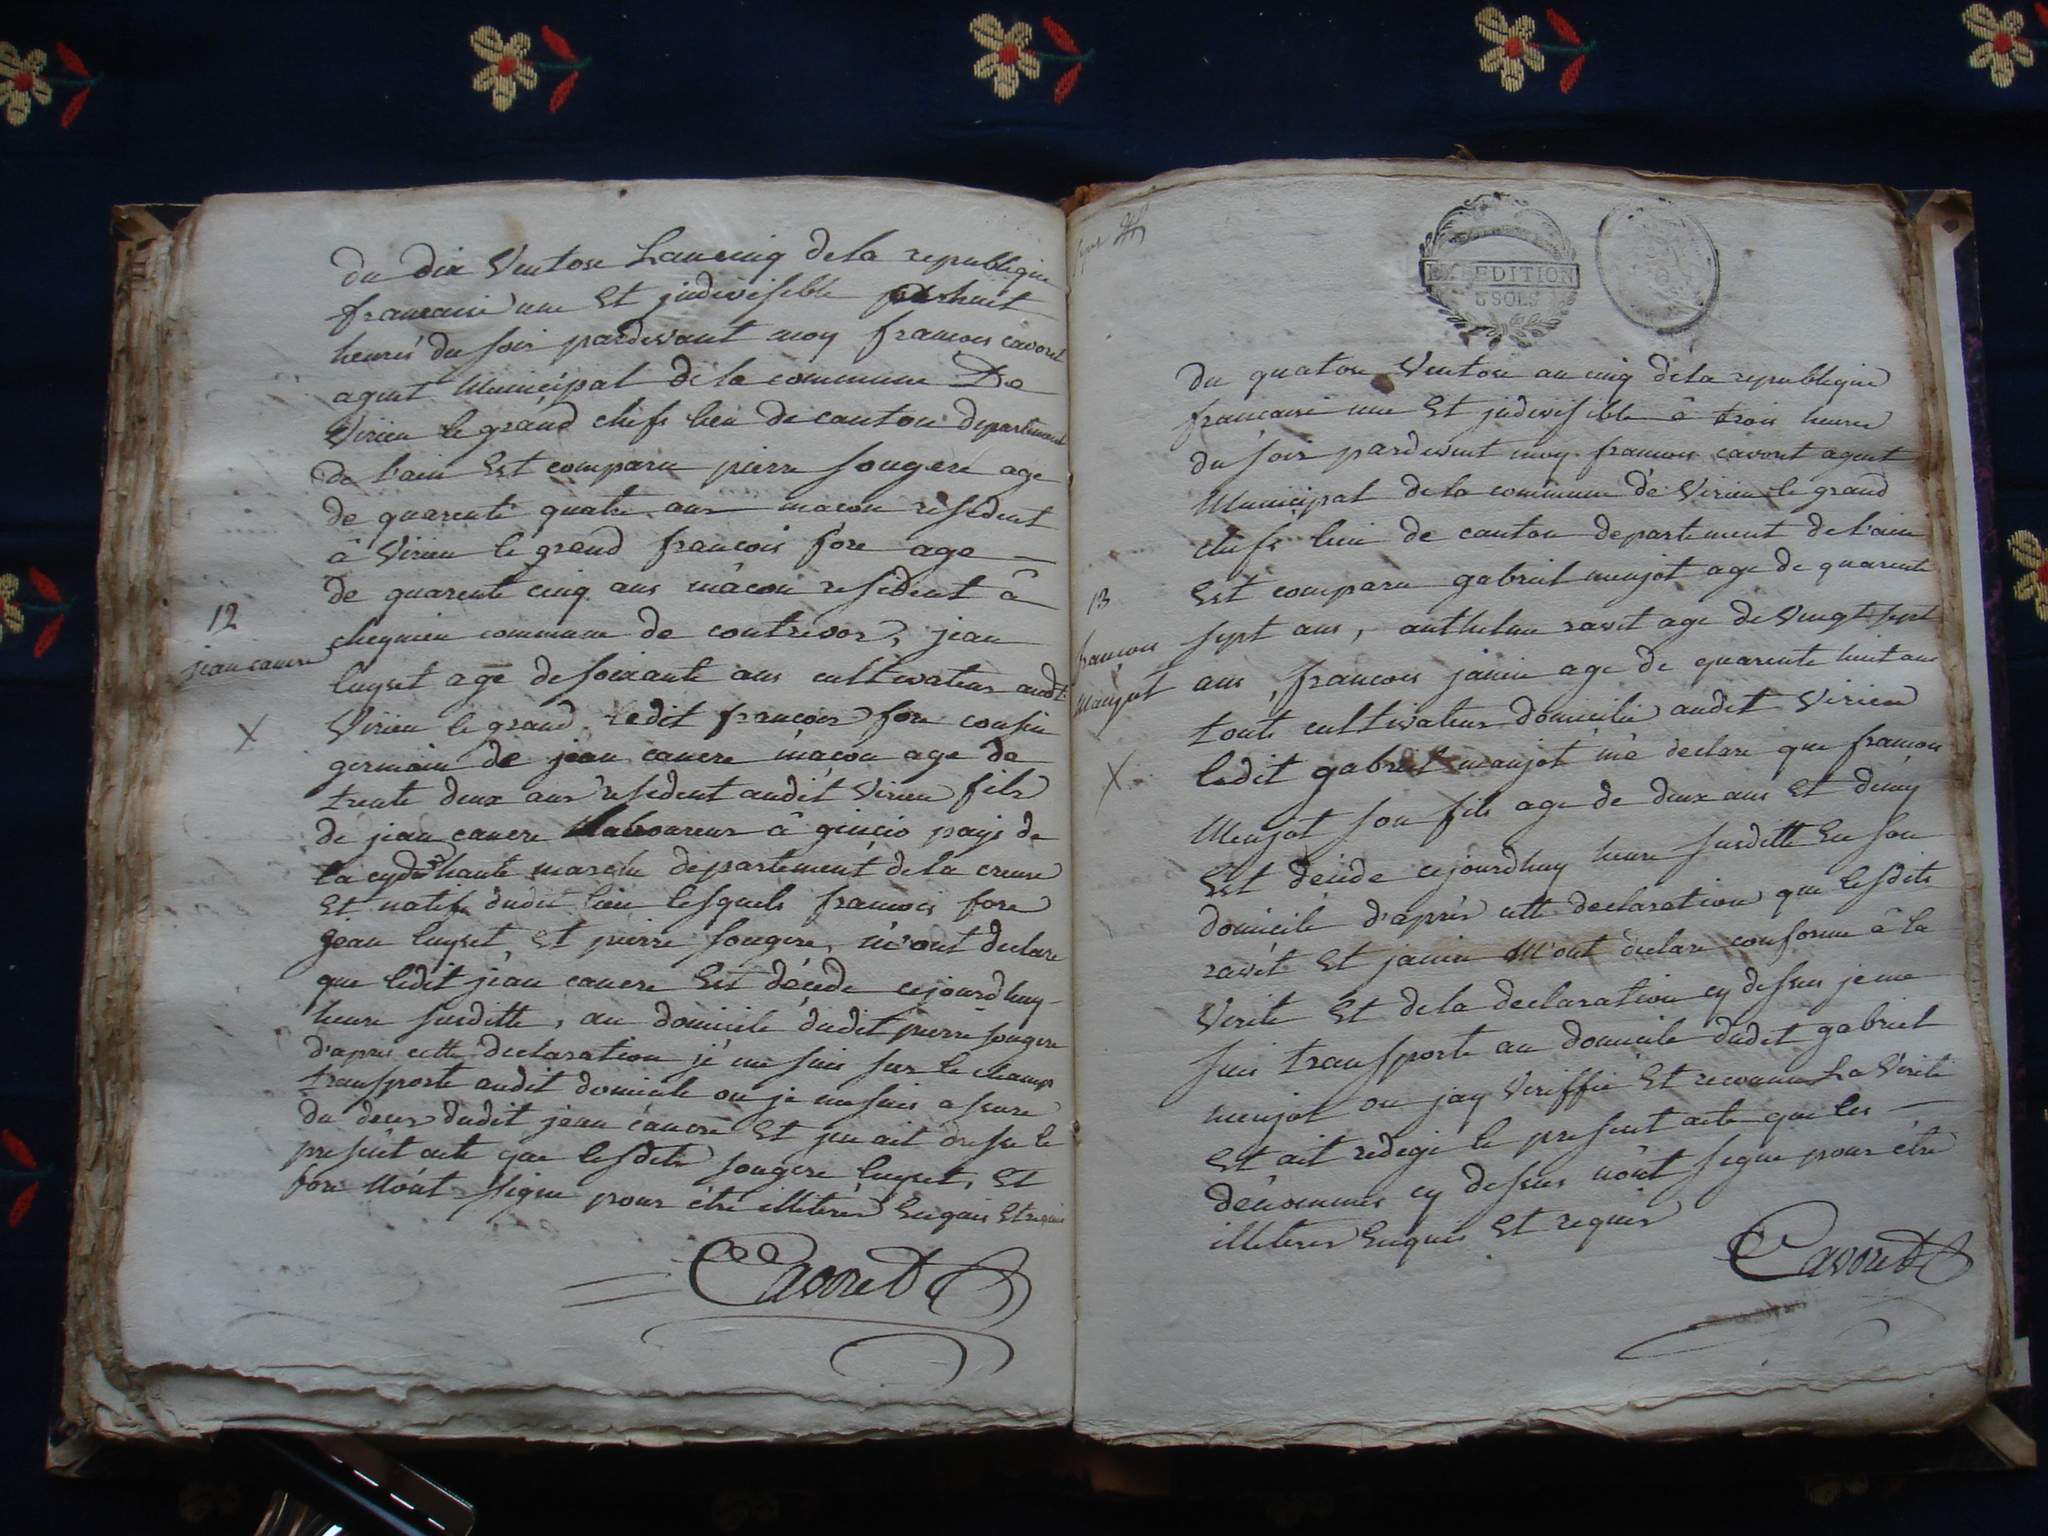 du dix Ventose Lan cinq de la republique
francaise une Et judivisible huit
heures du soir pardevant moy francois cavoret
agent Municipal de la commune De
Virieu le grand chefs lieu de canton departement
de l'ain Est comparu pierre fougere age
de quarente quatre ans macon resident
â Virieu le grand francois fore age
de quarente cinq ans mâcon resident â
cheignieu commune de contrevoz, jean
luyset age de soixante ans cultivateur audt
Virieu le grand, ledit francois fore cousin
germain de jean canere mâcon age de
trente deux ans resident audit Virieu fils
de jean canere Laboureur â pays de
la haute marche departement de la creuse
Et natif dudit lieu lesquels francois fore
Jean luyset Et pierre fougere, m'ont declare
que ledit jean canere Est décéde cejourdhuy
heure susditte, au domicile dudit pierre fougere
d'apres cette declaration je me suis sur le champ
transporte audit domicile ou je me suis assure
du deces dudit jean canere Et jen ait dresse le
present acte que lesdits fougere luyset, Et
fore N'ont signe pour être illeteres Enquis Et requis
Cavoret
12
jean canere
X
EXPEDITION
5 SOLS
du quatorze Ventose an cinq de la republique
francaise une Et judivisible â trois heures
du soir pardevant moy francois cavoret agent
Municipal de la commune de Virieu le grand
chefs lieu de canton departement de l'ain
Est comparu gabriel menjot age de quarente
sept ans, anthelme ravet age de Vingt sept
ans, francois janin age de quarente huit ans
touts cultivateurs domicilie audit Virieu
ledit gabriel menjot m'a declare que francois
Menjot son fils age de deux ans Et demy
Est décéde cejourdhuy heure susditte En son
domicile d'après cette declaration que lesdits
ravet Et janin M'ont declare conforme â la
Verite Et de la declaration cy dessus je me
suis transporte au domicile dudit gabriel
menjot ou jay Veriffie Et reconnu La Verite
Et ait redige le present acte que les
dénommes cy dessus n'ont signe pour être
illeteres Enquis Et requis
Cavoret
13
francois
Menjot
X